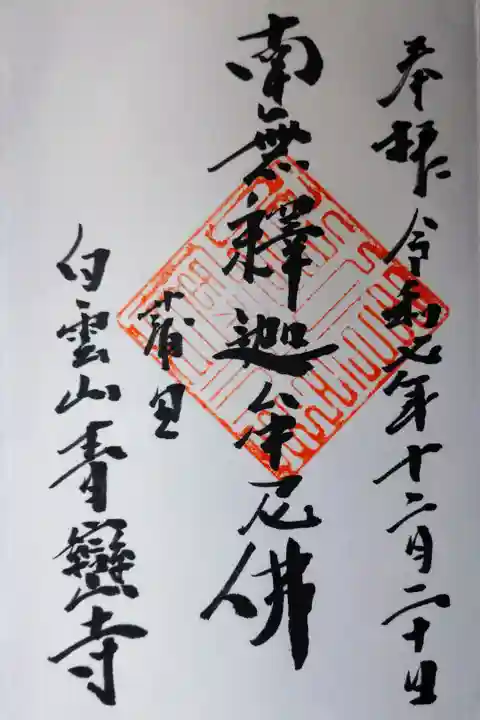 奉拝 令和七年十二月二十日
南無釋迦牟尼佛
白雲山青巒寺